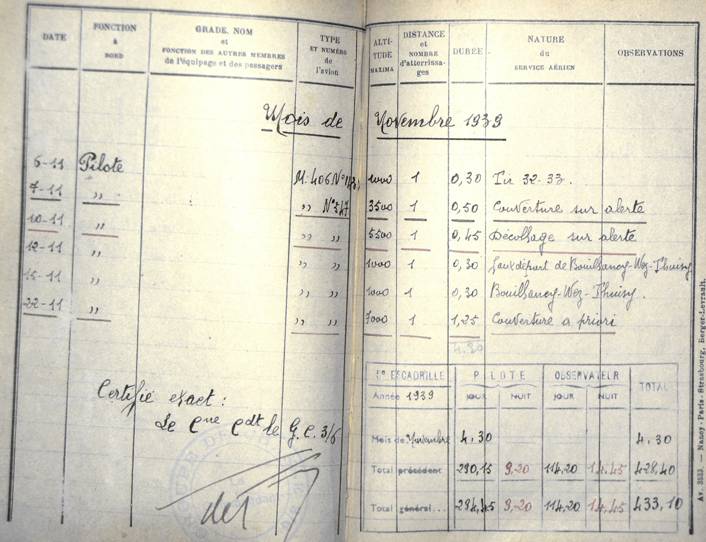 DATE FONCTION à BORD GRADE, NOM et FONCTION DES AUTRES MEMBRES de l'équipage et des passagers TYPE ET NUMÉRO de l'avion ALTITUDE MAXIMA DISTANCE et NOMBRE d'atterrissages DURÉE NATURE du SERVICE AÉRIEN OBSERVATIONS
Mois de Novembre 1939
Pilote M. 406 N° 1000 1 0,30 Tir 32-33.
7-11 " " 3500 1 0,50 Couverture sur alerte
10-11 " " " 5500 1 0,45 Décollage sur alerte
12-11 " " " 1000 1 0,30 de Bouillancy-Wez-Thuisy
15-11 " " " 1000 1 0,30 Bouillancy-Wez-Thuisy.
22-11 " " " 7000 1 1,25 Couverture a priori
4.30
Certifié exact :
Le Cne Cdt le G.C. 3/6
ESCADRILLE PILOTE OBSERVATEUR TOTAL
Année 1939 JOUR NUIT JOUR NUIT
Mois de Novembre 4.30 4.30
Total précédent 290,15 9.20 114,20 14.45 428,40
Total général... 294,45 9.20 114,20 14.45 433,10
Av. 3533. — Nancy-Paris-Strasbourg, Berger-Levrault.